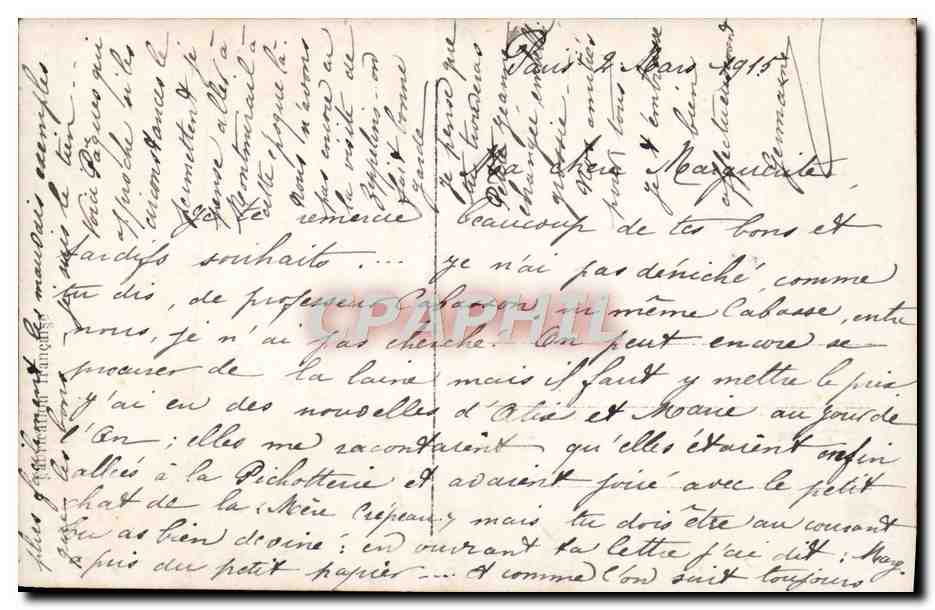 Paris 2 Mars 1915
Ma chère Marguerite
Je te remercie beaucoup de tes bons et
tardifs souhaits.... Je n'ai pas déniché, comme
tu dis, de professeur Cabasson, ni même Cabasse, entre
nous, je n'ai pas cherché. On peut encore se
procurer de la laine mais il faut y mettre le prix
J'ai eu des nouvelles d' et Marie au jour de
l'An ; elles me racontaient qu'elles étaient enfin
allées à la Pichotterie et avaient joué avec le petit
chat de la Mère Crépeaux mais tu dois être au courant
tu as bien deviné : en ouvrant ta lettre j'ai dit : Marg.
a pris du petit papier.... et comme l'on suit toujours
plus facilement les mauvais exemples
que les bons je suis le tien.
Voici Pâques qui
approche si les
circonstances le
permettent je
pense aller à
à
cette époque là.
nous n'avons
pas encore eu
la visite de
Zeppelins - on
fait bonne
garde
Je pense que
tu trouveras
Petite Jeanne
changée embellie
grossie -
Mes amitiés
pour tous
je t'embrasse
bien
affectueusement
Germaine
Fabrication française
CPAPHIL